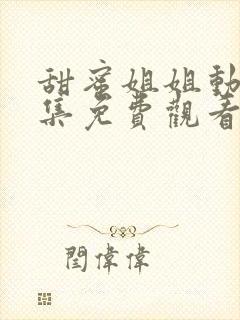 甜蜜姐姐動
集免費觀看
閏偉偉